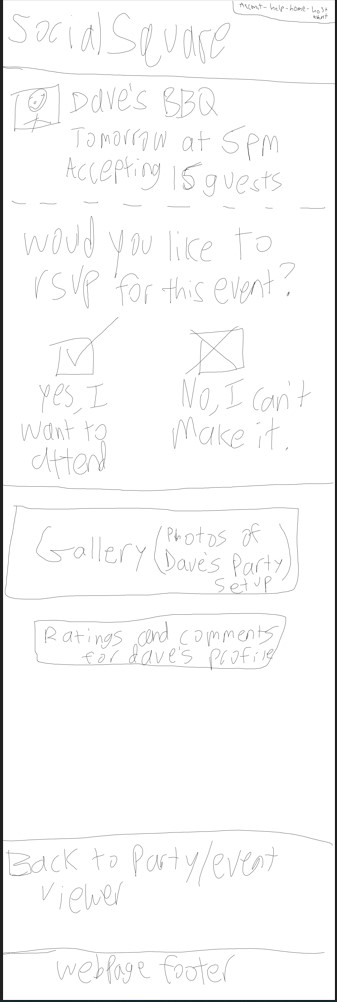 Account-help-home-host
event
Social Square
Dave's BBQ
Tomorrow at 5pm
Accepting 15 guests
Would you like to
rsvp for this event?
Yes, I
want to
attend
No, I can't
Make it.
Gallery (Photos of
Dave's Party)
setup
Ratings and comments
for dave's profile
Back to Party/event
viewer
webpage footer